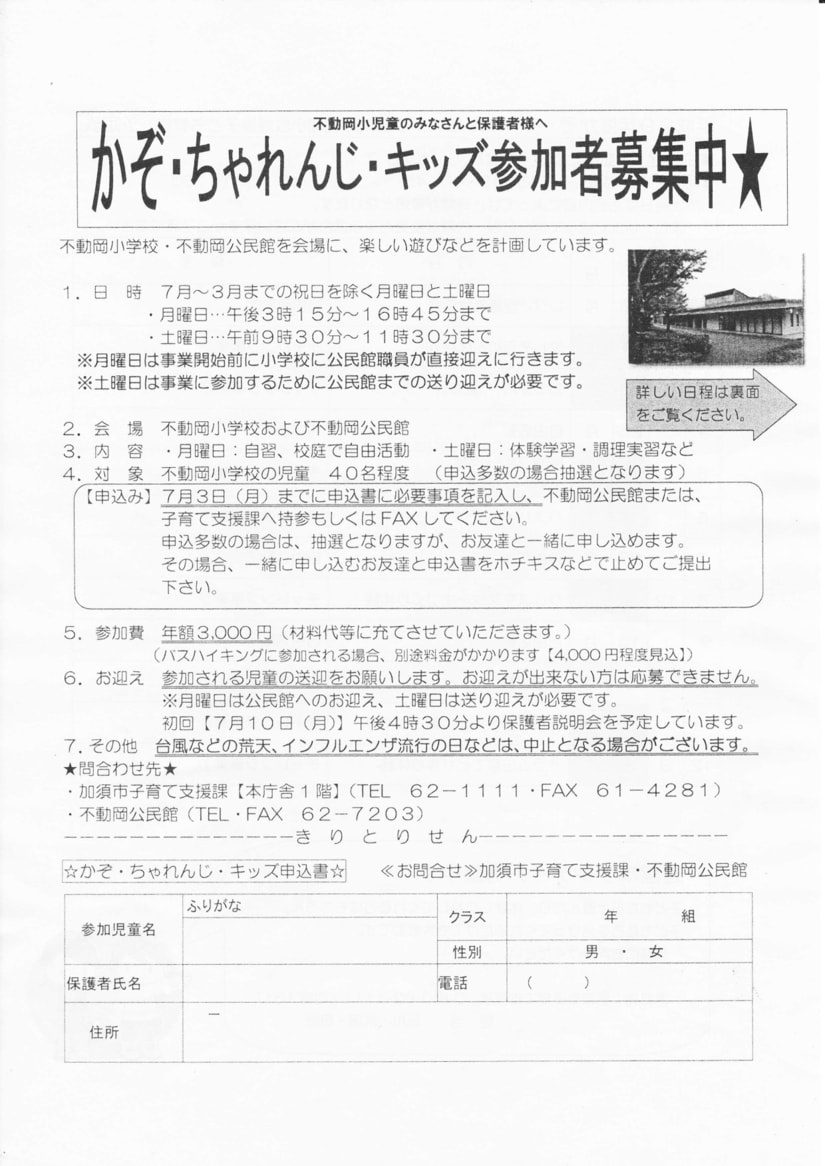 不動岡小児童のみなさんと保護者様へ
かぞ・ちゃれんじ・キッズ参加者募集中★
不動岡小学校・不動岡公民館を会場に、楽しい遊びなどを計画しています。
１．日　時　７月～３月までの祝日を除く月曜日と土曜日
・月曜日…午後３時１５分～１６時４５分まで
・土曜日…午前９時３０分～１１時３０分まで
※月曜日は事業開始前に小学校に公民館職員が直接迎えに行きます。
※土曜日は事業に参加するために公民館までの送り迎えが必要です。
詳しい日程は裏面
をご覧ください。
２．会　場　不動岡小学校および不動岡公民館
３．内　容　・月曜日：自習、校庭で自由活動　・土曜日：体験学習・調理実習など
４．対　象　不動岡小学校の児童　４０名程度　（申込多数の場合抽選となります）
【申込み】７月３日（月）までに申込書に必要事項を記入し、不動岡公民館または、
子育て支援課へ持参もしくはFAXしてください。
申込多数の場合は、抽選となりますが、お友達と一緒に申し込めます。
その場合、一緒に申し込むお友達と申込書をホチキスなどで止めてご提出
下さい。
５．参加費　年額３,０００円（材料代等に充てさせていただきます。）
（バスハイキングに参加される場合、別途料金がかかります【４,０００円程度見込】）
６．お迎え　参加される児童の送迎をお願いします。お迎えが出来ない方は応募できません。
※月曜日は公民館へのお迎え、土曜日は送り迎えが必要です。
初回【７月１０日（月）】午後４時３０分より保護者説明会を予定しています。
７．その他　台風などの荒天、インフルエンザ流行の日などは、中止となる場合がございます。
★問合わせ先★
・加須市子育て支援課【本庁舎１階】（TEL　６２－１１１１・FAX　６１－４２８１）
・不動岡公民館（TEL・FAX　６２－７２０３）
－－－－－－－－－－－－－－きりとりせん－－－－－－－－－－－－－－－
☆かぞ・ちゃれんじ・キッズ申込書☆　≪お問合せ≫加須市子育て支援課・不動岡公民館
参加児童名　ふりがな　クラス　年　組
性別　男　・　女
保護者氏名　電話　（　　）
住所　－